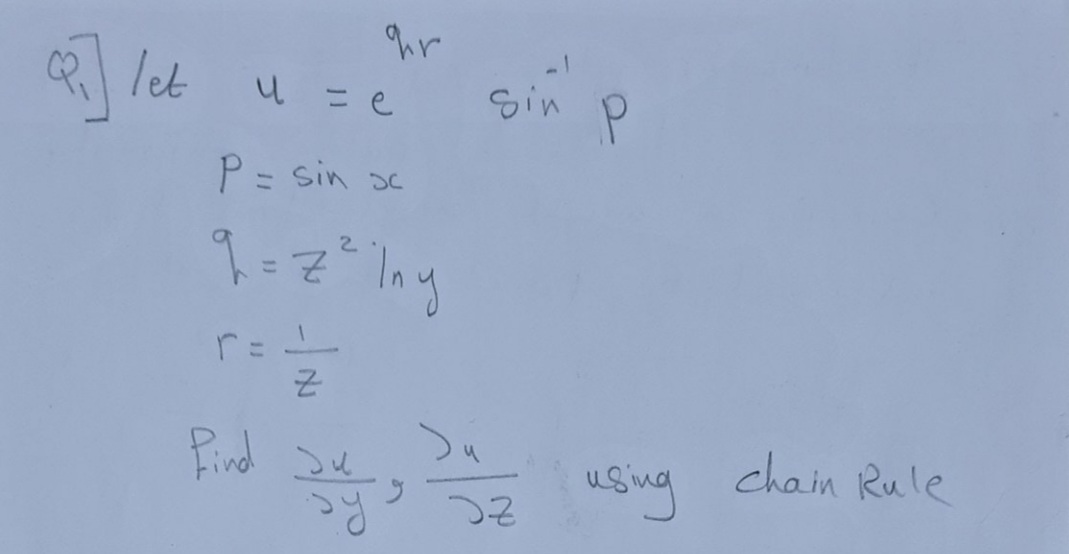 Q₁] let u = e^{qr} sin⁻¹ p
P = sin x
q = z² ln y
r = 1/z
find ∂u/∂y , ∂u/∂z using chain Rule